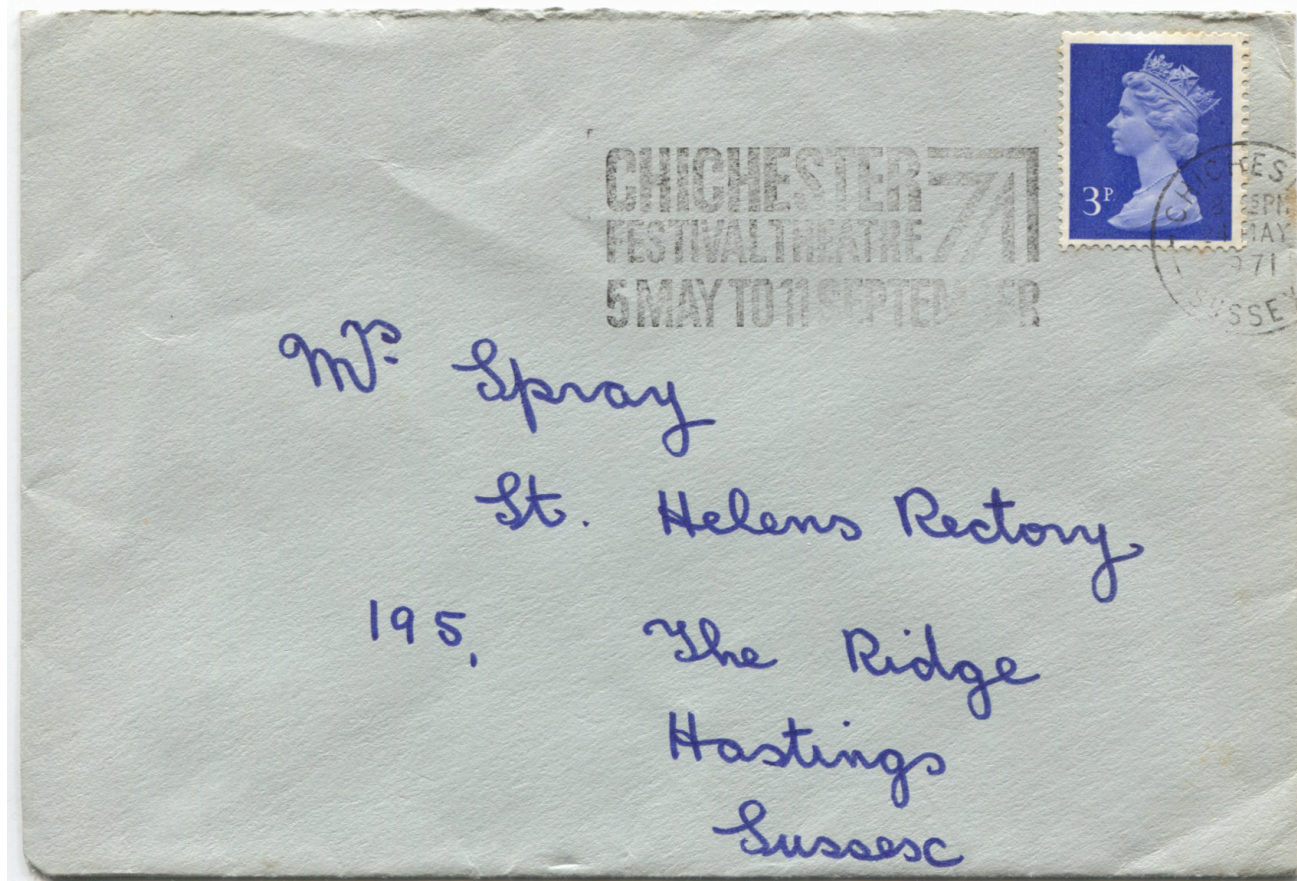 CHICHESTER 71
FESTIVAL THEATRE
5 MAY TO 11 SEPTEMBER
3P
CHICHES
PM
MAY
971
SUSSEX
Mrs. Spray
St. Helens Rectory
195, The Ridge
Hastings
Sussex